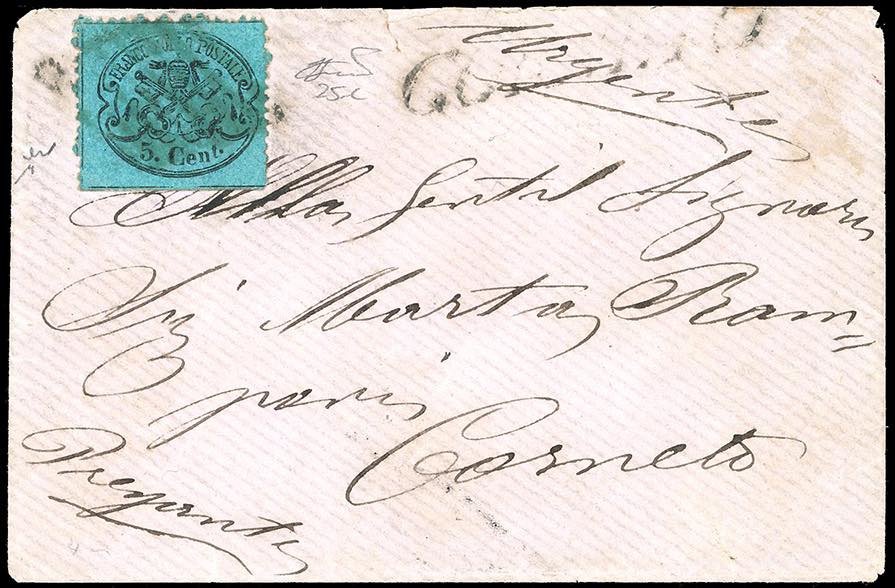 FRANCO BOLLO POSTALE
5. Cent.
25L
Urgente
Alla Gentil Signora
Sig Marta Ram=
poni
Corneto
Pregante